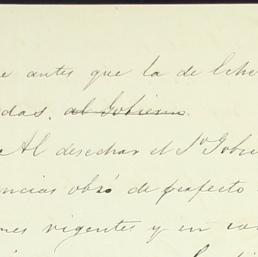 e antes que la de liber
das, al Gobierno.
Al desechar el Sr Gobi
encias obró de perfecto
nes vigentes y en con